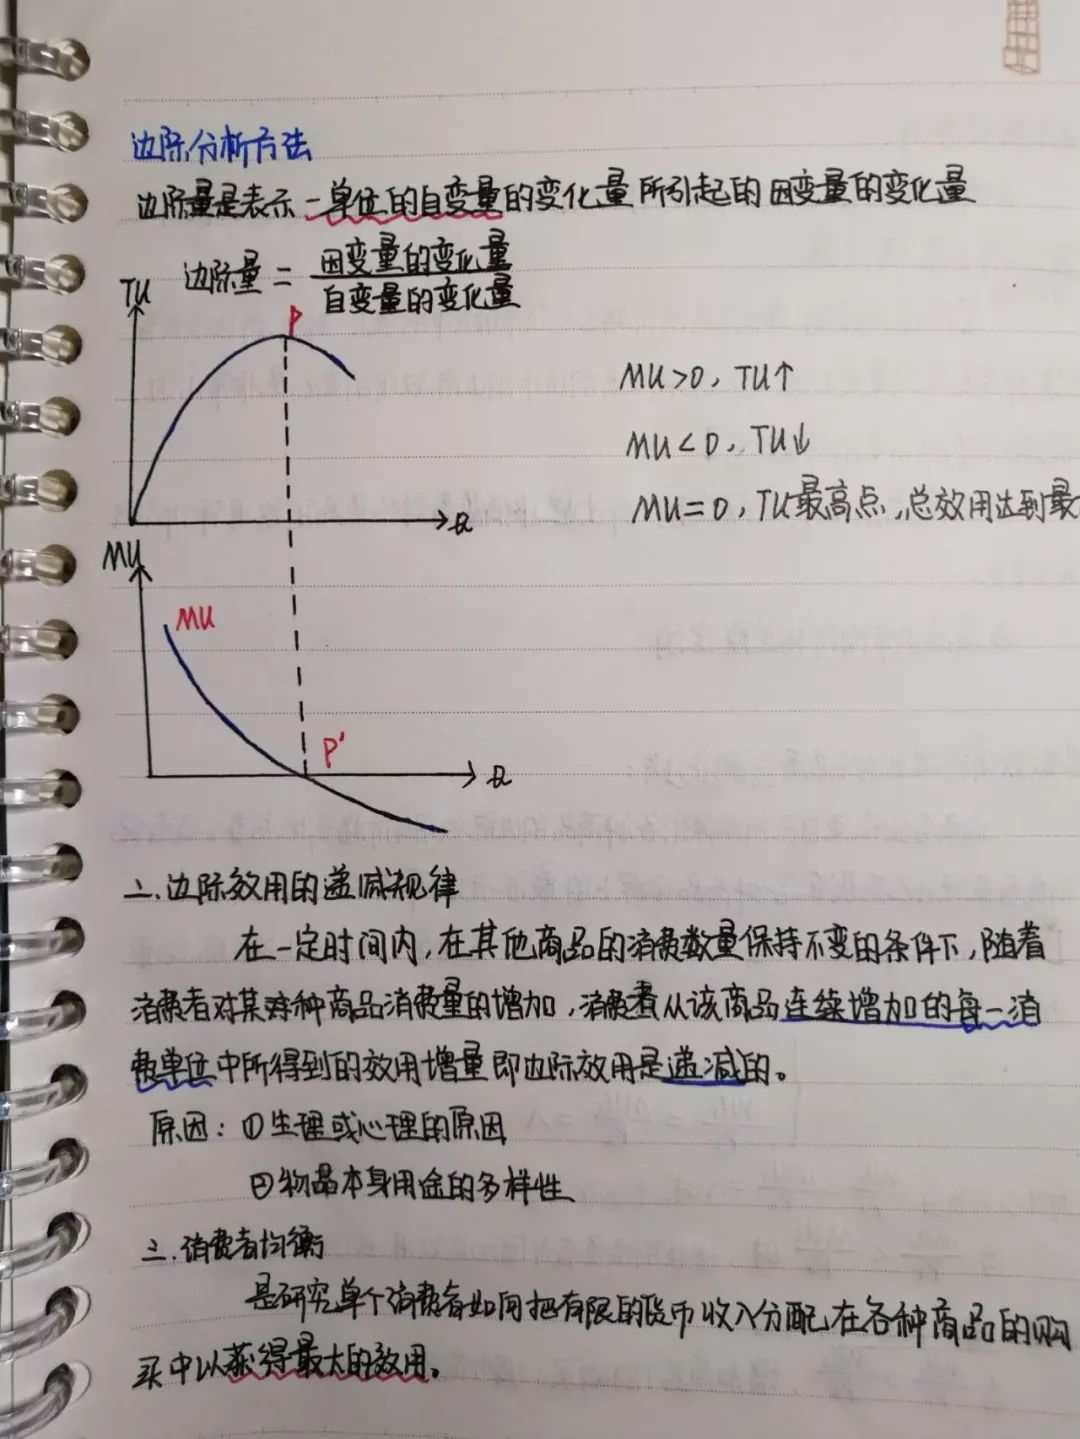 边际分析方法
边际量是表示一单位的自变量的变化量所引起的因变量的变化量
边际量 = 因变量的变化量
自变量的变化量
TU
P
MU>0, TU↑
MU<0, TU↓
MU=0, TU最高点,总效用达到最
Q
MU
MU
P'
Q
二.边际效用的递减规律
在一定时间内,在其他商品的消费数量保持不变的条件下,随着
消费者对某种商品消费量的增加,消费者从该商品连续增加的每一消
费单位中所得到的效用增量即边际效用是递减的。
原因: ①生理或心理的原因
②物品本身用途的多样性
三.消费者均衡
是研究单个消费者如何把有限的货币收入分配在各种商品的购
买中以获得最大的效用。